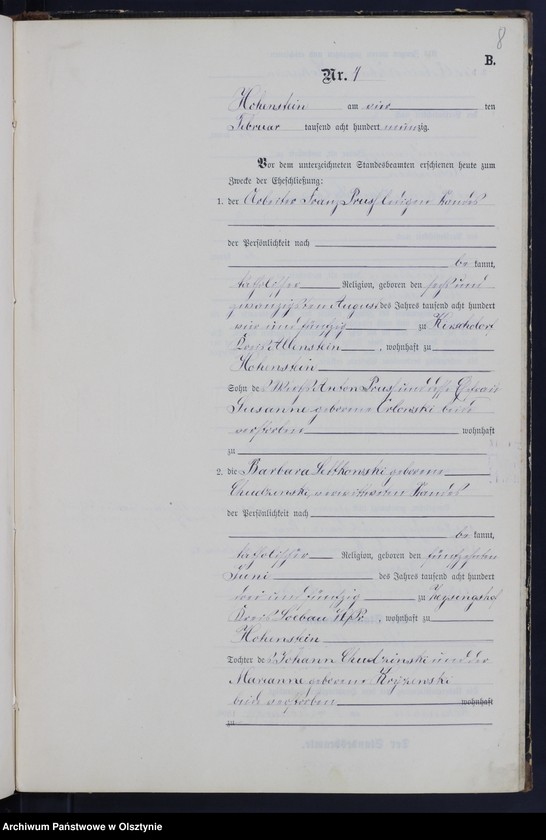 8
B.
Nr. 4
Hohenstein am vier ten
Februar tausend acht hundert neunzig.
Vor dem unterzeichneten Standesbeamten erschienen heute zum
Zwecke der Eheschließung:
1. der Arbeiter Franz Preuß ledigen Standes
der Persönlichkeit nach
be kannt,
katholischer Religion, geboren den sechs und
zwanzigsten August des Jahres tausend acht hundert
vier und fünfzig zu
Kreis Allenstein, wohnhaft zu
Hohenstein
Sohn des Anton Preuß und Ehefrau
Susanne geborene Orlowski beide
verstorben wohnhaft
zu
2. die Barbara geborene
verwittweten Standes
der Persönlichkeit nach
be kannt,
katholischer Religion, geboren den fünfzehnten
Juni des Jahres tausend acht hundert
drei und fünfzig zu
Kreis Loebau WPr., wohnhaft zu
Hohenstein
Tochter des Johann Chudzinski und der
Marianne geborene
beide verstorben wohnhaft
zu
Archiwum Państwowe w Olsztynie